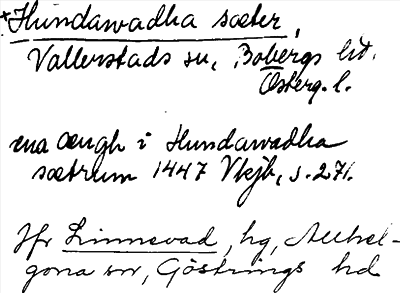 +Hundawadha sæter,
Vallerstads sn, Bobergs hd.
Österg. l.
ena ængh i Hundawadha
sætrum 1447 Vkjb, s. 271.
Jfr Linnevad, hg, Allhel-
gona sn, Göstrings hd